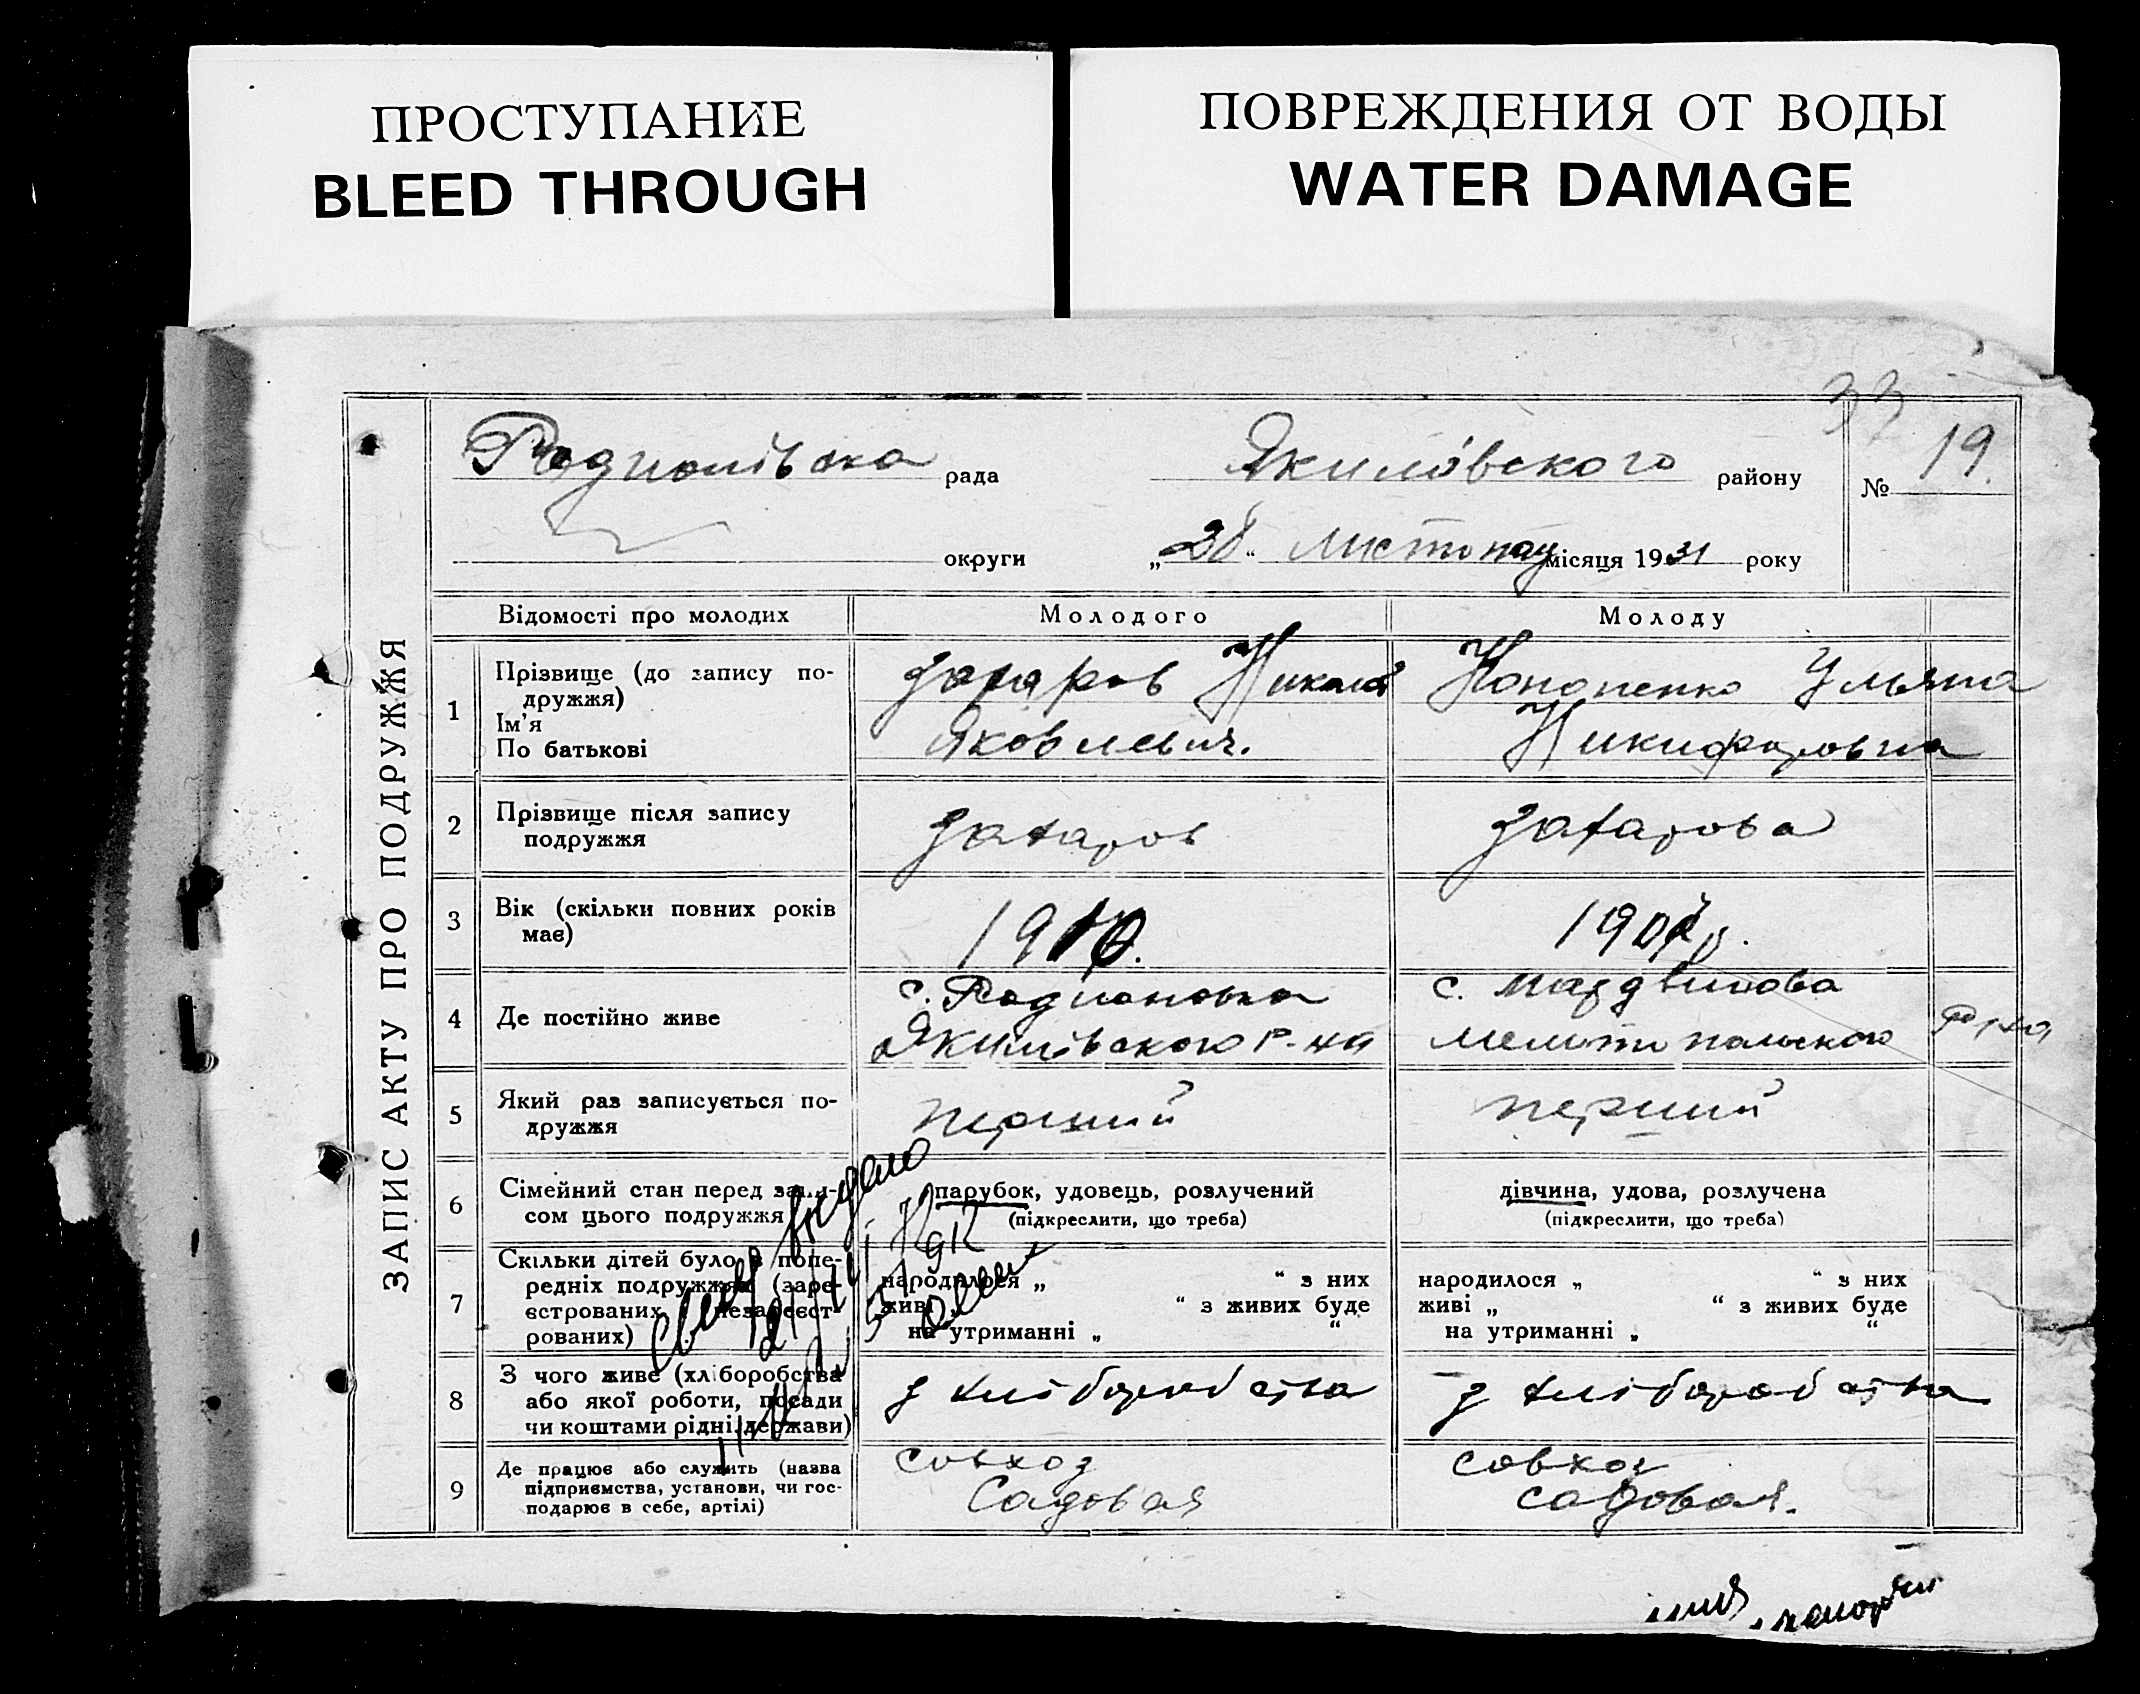 ПРОСТУПАНИЕ
BLEED THROUGH
ПОВРЕЖДЕНИЯ ОТ ВОДЫ
WATER DAMAGE
33
ЗАПИС АКТУ ПРО ПОДРУЖЖЯ
Родионівска рада Якимовского району № 19.
округи „ “ листопад місяця 1931 року
Відомості про молодих Молодого Молоду
1 Прізвище (до запису по-
дружжя)
Ім'я
По батькові
Захаров Николай
Яковлевич.
Кононенко Ульяна
Никифоровна
2 Прізвище після запису
подружжя
Захаров
Захарова
3 Вік (скільки повних років
має)
1910.
190 р.
4 Де постійно живе
с. Родионовка
Якимівского р-на
с. Мардвинова
Мелитопольского
5 Який раз записується по-
дружжя
перший
перший
6 Сімейний стан перед запи-
сом цього подружжя
парубок, удовець, розлучений
(підкреслити, що треба)
дівчина, удова, розлучена
(підкреслити, що треба)
7 Скільки дітей було в попе-
редніх подружжях (заре-
єстрованих незареєст-
рованих)
народилося „ “ з них
живі „ “ з живих буде
на утриманні „ “
народилося „ “ з них
живі „ “ з живих буде
на утриманні „ “
8 З чого живе (хліборобства
або якої роботи, посади
чи коштами рідні, держави)
з хліборобства
з хліборобства
9 Де працює або служить (назва
підприємства, установи, чи гос-
подарює в себе, артілі)
совхоз
Садовая
совхоз
садовая.